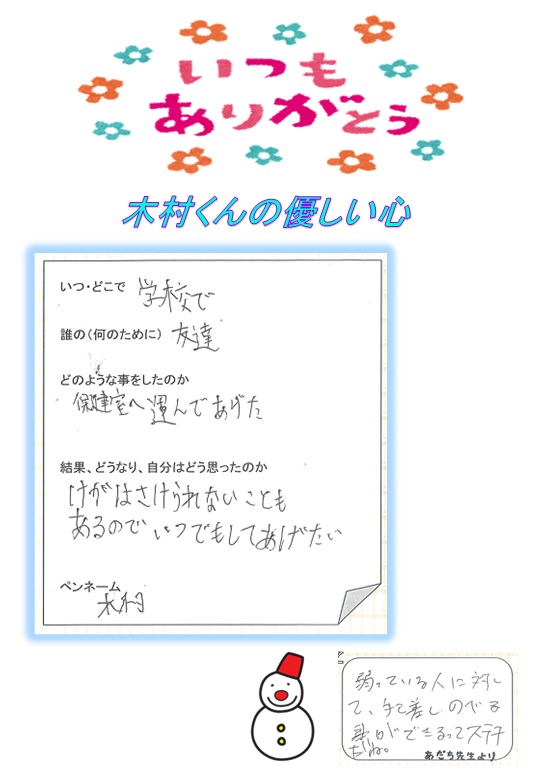 いつも
ありがとう
木村くんの優しい心
いつ・どこで 学校で
誰の(何のために) 友達
どのような事をしたのか
保健室へ運んであげた
結果、どうなり、自分はどう思ったのか
けがはさけられないことも
あるので いつでもしてあげたい
ペンネーム
木村
弱っている人に対し
て、手を差しのべる
事ができるってステキ
だね。
あだち先生より